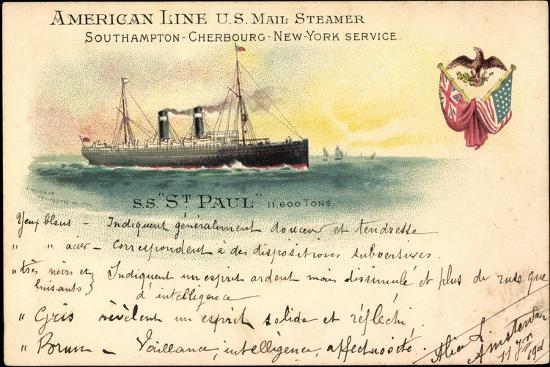 AMERICAN LINE U.S. MAIL STEAMER
SOUTHAMPTON-CHERBOURG-NEW-YORK SERVICE.
S.S. "ST PAUL" 11,600 TONS.
Yeux bleus - Indiquent généralement douceur et tendresse
" " acier - Correspondent à des dispositions subversives.
" très noirs et luisants } Indiquent un esprit ardent mais dissimulé et plus de ruse que
d'intelligence
" Gris révèlent un esprit solide et réfléchi
" Brun - Vaillance, intelligence, affectuosité.
Alice
Amsterdam
11